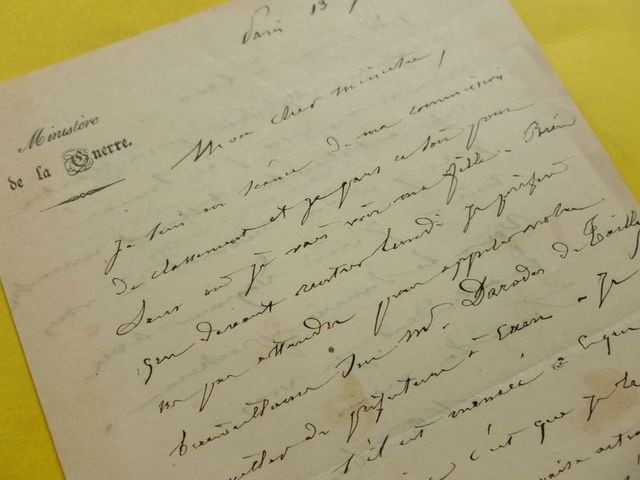 Paris 13
Ministère
de la Guerre.
Mon cher ministre,
Je suis en séance de ma commission
de classement et je pars ce soir pour
Sens où je vais voir ma fille. Bien
que devant rentrer lundi je préfère
ne pas attendre pour appeler votre
bienveillance sur Mr. Darodes de Tailly
conseiller de préfecture à Caen. Je
s'il est menacé
c'est que je la